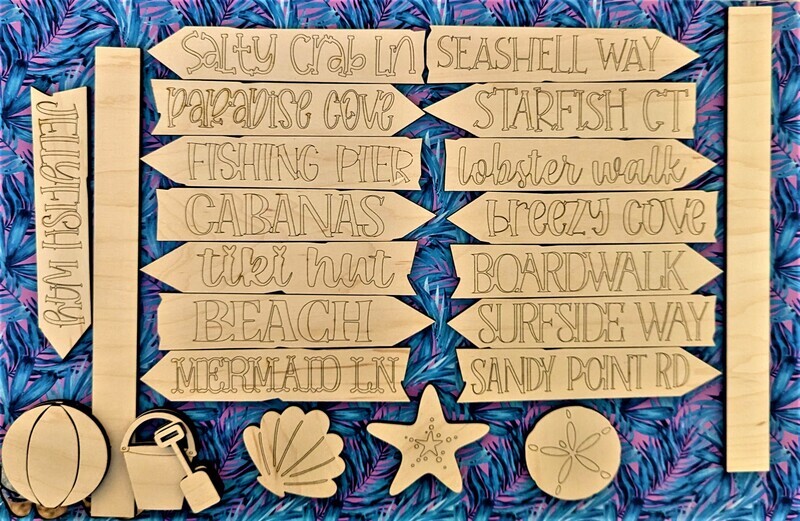 JELLYFISH WAY
Salty Crab LN
SEASHELL WAY
PARADISE COVE
STARFISH CT
FISHING PIER
lobster walk
CABANAS
breezy cove
tiki hut
BOARDWALK
BEACH
SURFSIDE WAY
MERMAID LN
SANDY POINT RD